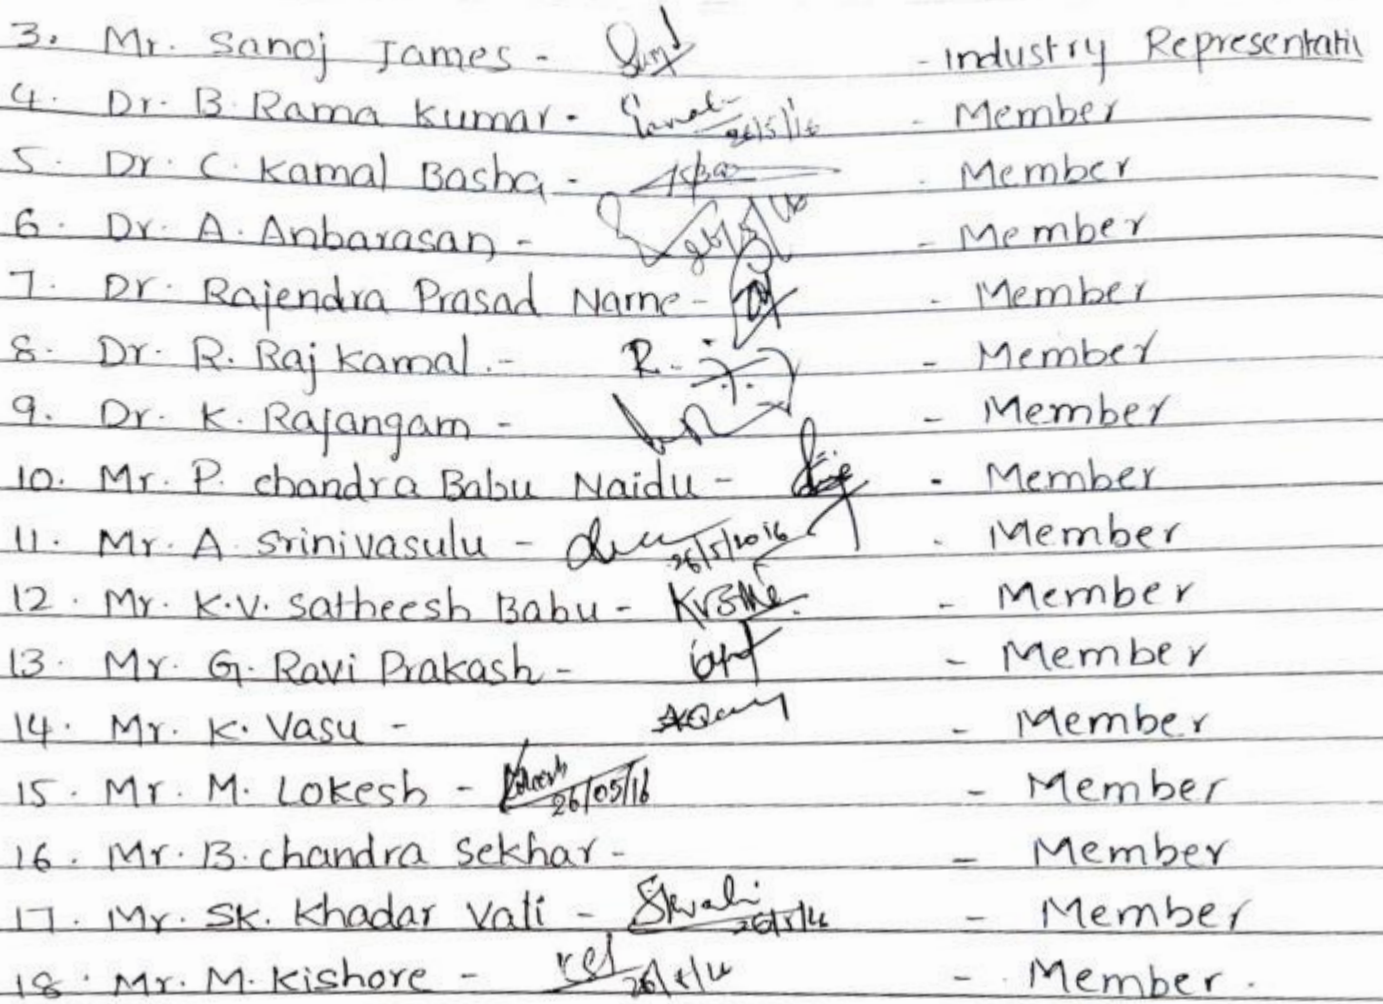 3. Mr. Sanoj James - - Industry Representati
4. Dr. B. Rama Kumar - 26/5/16 - Member
5. Dr. C. Kamal Basha - - Member
6. Dr. A. Anbarasan - - Member
7. Dr. Rajendra Prasad Narne - - Member
8. Dr. R. Raj Kamal - R. - Member
9. Dr. K. Rajangam - - Member
10. Mr. P. chandra Babu Naidu - - Member
11. Mr. A. Srinivasulu - 26/5/2016 - Member
12. Mr. K.V. Satheesh Babu - - Member
13. Mr. G. Ravi Prakash - - Member
14. Mr. K. Vasu - - Member
15. Mr. M. Lokesh - 26/05/16 - Member
16. Mr. B. chandra Sekhar - - Member
17. Mr. SK. Khadar Vali - Skvali 26/5/16 - Member
18. Mr. M. Kishore - 26/5/16 - Member.